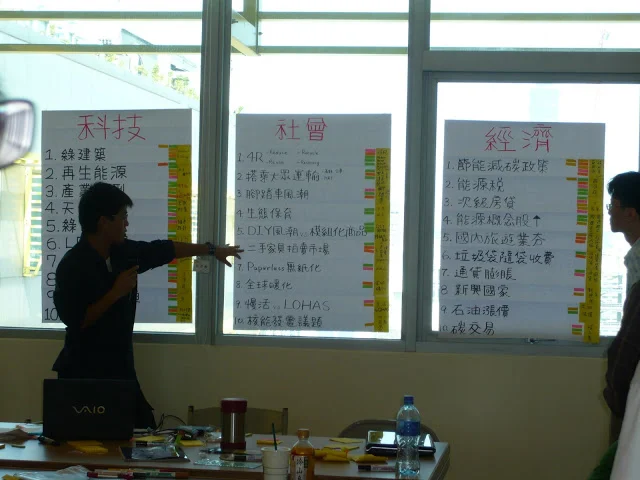 科技
1. 綠建築
2. 再生能源
3. 產業
4. 天
5. 綠
6. L
7
8
9
10
社會
1. 4R
2. 搭乘大眾運輸
3. 腳踏車風潮
4. 生態保育
5. D.I.Y風潮... 模組化商品
6. 二手家具拍賣市場
7. Paperless無紙化
8. 全球暖化
9. 慢活... LOHAS
10. 核能發電議題
經濟
1. 節能減碳政策
2. 能源稅
3. 次級房貸
4. 能源概念股↑
5. 國內旅遊業夯
6. 垃圾袋隨袋收費
7. 通貨膨脹
8. 新興國家
9. 石油漲價
10. 碳交易
VAIO